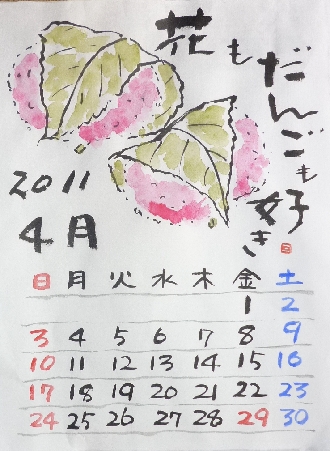 花も
だんごも
好き
2011
4月
日 月 火 水 木 金 土
1 2
3 4 5 6 7 8 9
10 11 12 13 14 15 16
17 18 19 20 21 22 23
24 25 26 27 28 29 30